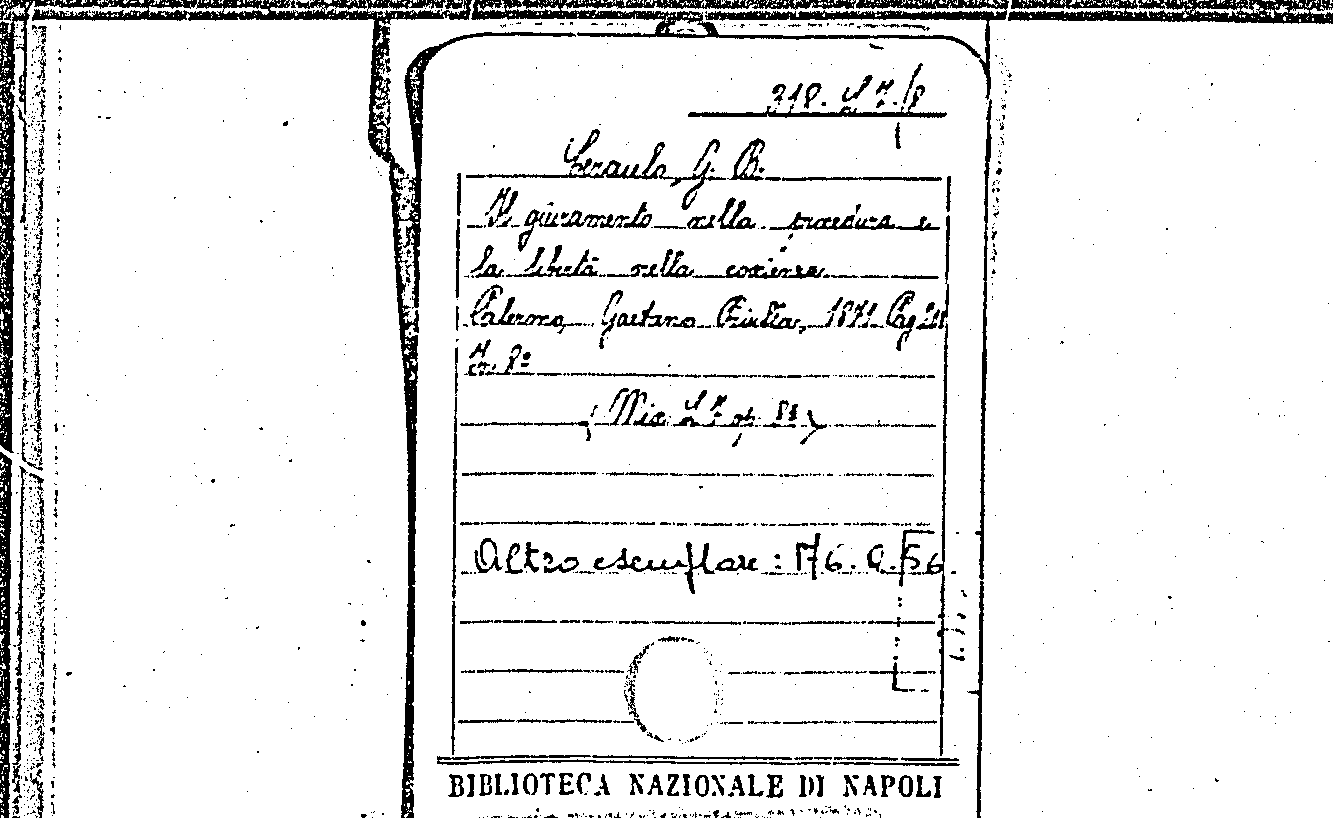 Ceraulo, G. B.
Il giuramento nella procedura e
la libertà nella coscienza.
Palermo, Gaetano Priulla, 1871. Pag.
In 8º
(Misc.
Altro esemplare: 176. Q. 56.
BIBLIOTECA NAZIONALE DI NAPOLI